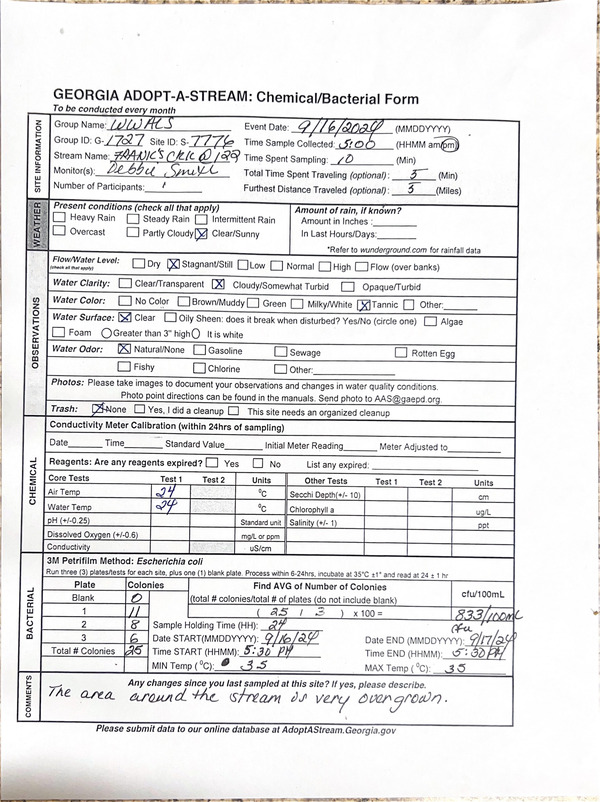 GEORGIA ADOPT-A-STREAM: Chemical/Bacterial Form
To be conducted every month
SITE INFORMATION
Group Name: WWALS Event Date: 9/16/2024 (MMDDYYYY)
Group ID: G-1727 Site ID: S-7776 Time Sample Collected: 5:00 (HHMM am/pm)
Stream Name: FRANK'S CRK @ 122 Time Spent Sampling: 10 (Min)
Monitor(s): Debbie Total Time Spent Traveling (optional): 5 (Min)
Number of Participants: 1 Furthest Distance Traveled (optional): 5 (Miles)
WEATHER
Present conditions (check all that apply) Amount of rain, if known?
Heavy Rain Steady Rain Intermittent Rain Amount in Inches:
Overcast Partly Cloudy X Clear/Sunny In Last Hours/Days:
*Refer to wunderground.com for rainfall data
OBSERVATIONS
Flow/Water Level: Dry X Stagnant/Still Low Normal High Flow (over banks)
(check all that apply)
Water Clarity: Clear/Transparent X Cloudy/Somewhat Turbid Opaque/Turbid
Water Color: No Color Brown/Muddy Green Milky/White X Tannic Other:
Water Surface: X Clear Oily Sheen: does it break when disturbed? Yes/No (circle one) Algae
Foam Greater than 3" high It is white
Water Odor: X Natural/None Gasoline Sewage Rotten Egg
Fishy Chlorine Other:
Photos: Please take images to document your observations and changes in water quality conditions.
Photo point directions can be found in the manuals. Send photo to AAS@gaepd.org.
Trash: X None Yes, I did a cleanup This site needs an organized cleanup
CHEMICAL
Conductivity Meter Calibration (within 24hrs of sampling)
Date Time Standard Value Initial Meter Reading Meter Adjusted to
Reagents: Are any reagents expired? Yes No List any expired:
Core Tests Test 1 Test 2 Units Other Tests Test 1 Test 2 Units
Air Temp 24 °C Secchi Depth(+/- 10) cm
Water Temp 24 °C Chlorophyll a ug/L
pH (+/-0.25) Standard unit Salinity (+/- 1) ppt
Dissolved Oxygen (+/-0.6) mg/L or ppm
Conductivity uS/cm
BACTERIAL
3M Petrifilm Method: Escherichia coli
Run three (3) plates/tests for each site, plus one (1) blank plate. Process within 6-24hrs, incubate at 35°C ±1° and read at 24 ± 1 hr
Plate Colonies Find AVG of Number of Colonies cfu/100mL
Blank 0 (total # colonies/total # of plates (do not include blank)
1 11 ( 25 / 3 ) x 100 = 833/100mL
cfu
2 8 Sample Holding Time (HH): 24
3 6 Date START(MMDDYYYY): 9/16/24 Date END (MMDDYYYY): 9/17/24
Total # Colonies 25 Time START (HHMM): 5:30 PM Time END (HHMM): 5:30 PM
MIN Temp (°C): 35 MAX Temp (°C): 35
COMMENTS
Any changes since you last sampled at this site? If yes, please describe.
The area around the stream is very overgrown.
Please submit data to our online database at AdoptAStream.Georgia.gov